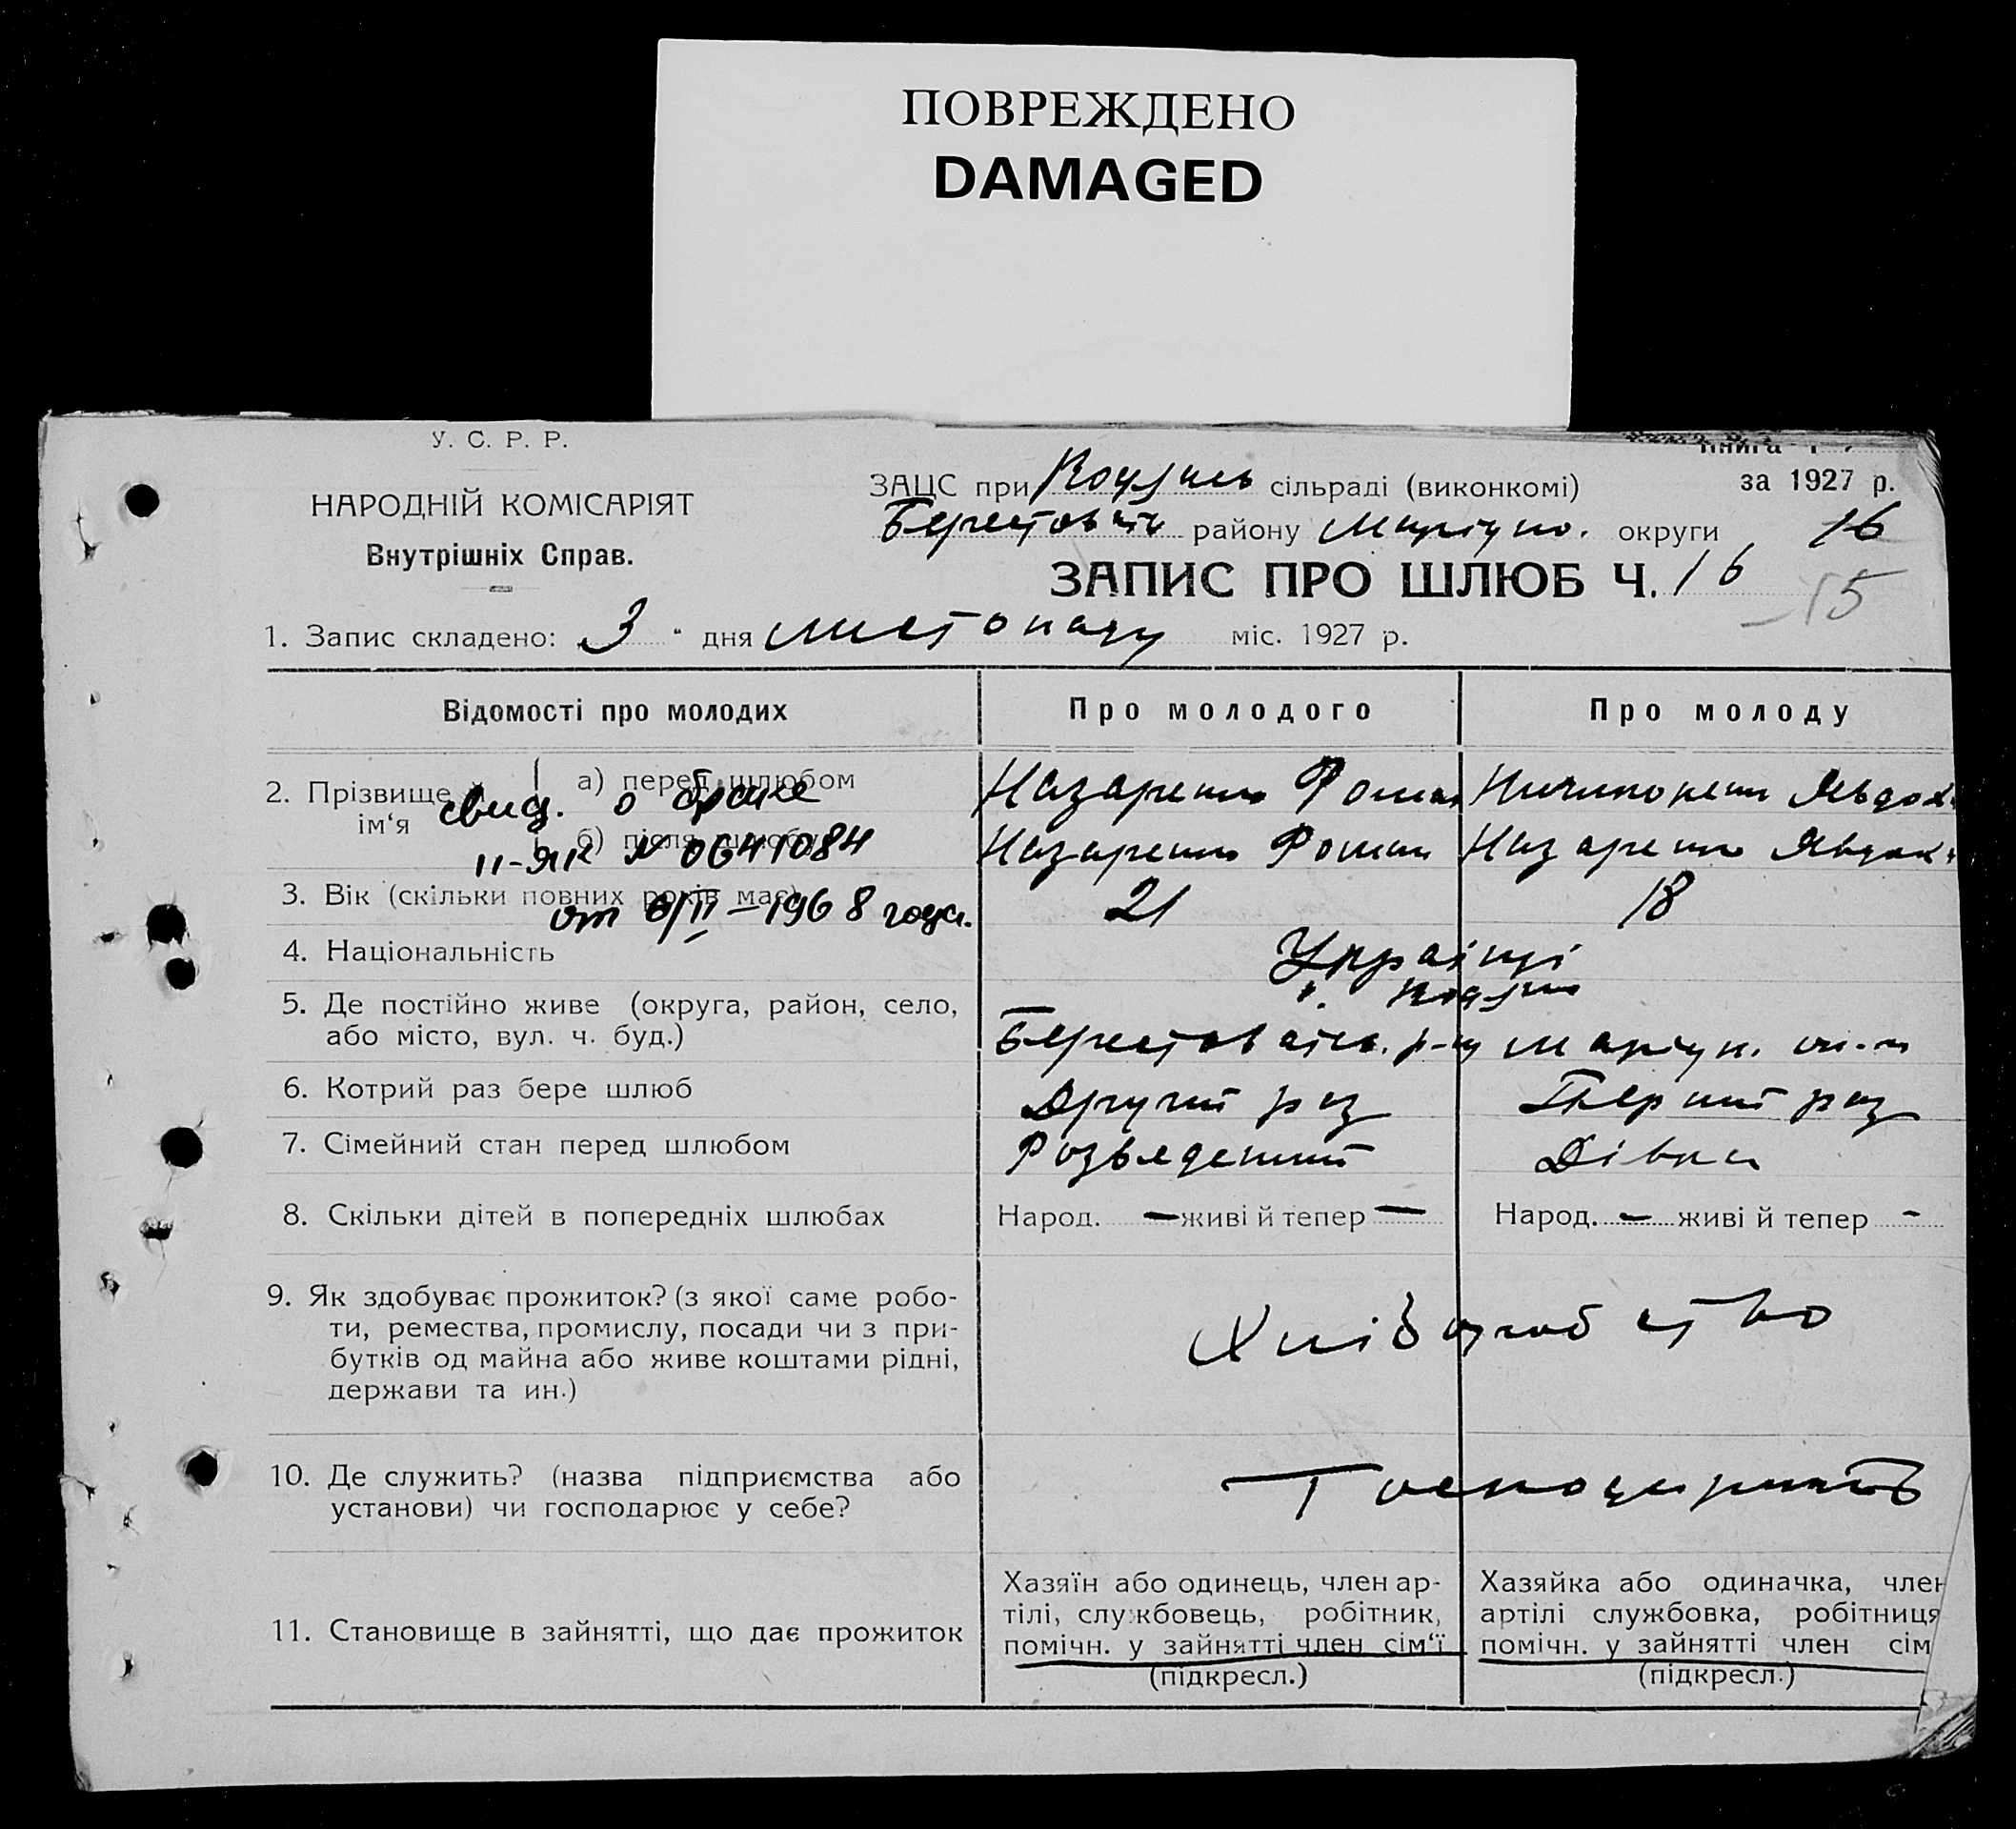 ПОВРЕЖДЕНО
DAMAGED
У. С. Р. Р.
НАРОДНІЙ КОМІСАРІЯТ
Внутрішніх Справ.
за 1927 р.
ЗАЦС при сільраді (виконкомі)
району Маріупо. округи 16
ЗАПИС ПРО ШЛЮБ Ч. 16
15
1. Запис складено: 3 " дня листопаду міс. 1927 р.
Відомості про молодих Про молодого Про молоду
2. Прізвище й ім'я
а) перед шлюбом Назаренко Роман Явдох
б) після шлюбу Назаренко Роман Назаренко Явдок
свид. о браке
II-ЯК № 0641084
от 6/II – 1968 года.
3. Вік (скільки повних років має) 21 18
4. Національність Українці
5. Де постійно живе (округа, район, село,
або місто, вул. ч. буд.) р-ну Маріуп.
6. Котрий раз бере шлюб Другий раз Перший раз
7. Сімейний стан перед шлюбом Розведений Дівка
8. Скільки дітей в попередніх шлюбах Народ. — живі й тепер — Народ. — живі й тепер -
9. Як здобуває прожиток? (з якої саме робо-
ти, ремества, промислу, посади чи з при-
бутків од майна або живе коштами рідні,
держави та ин.)
Хліборобство
10. Де служить? (назва підприємства або
установи) чи господарює у себе?
11. Становище в зайнятті, що дає прожиток
Хазяїн або одинець, член ар-
тілі, службовець, робітник,
помічн. у зайнятті член сім'ї
(підкресл.)
Хазяйка або одиначка, член
артілі службовка, робітниця
помічн. у зайнятті член сім
(підкресл.)